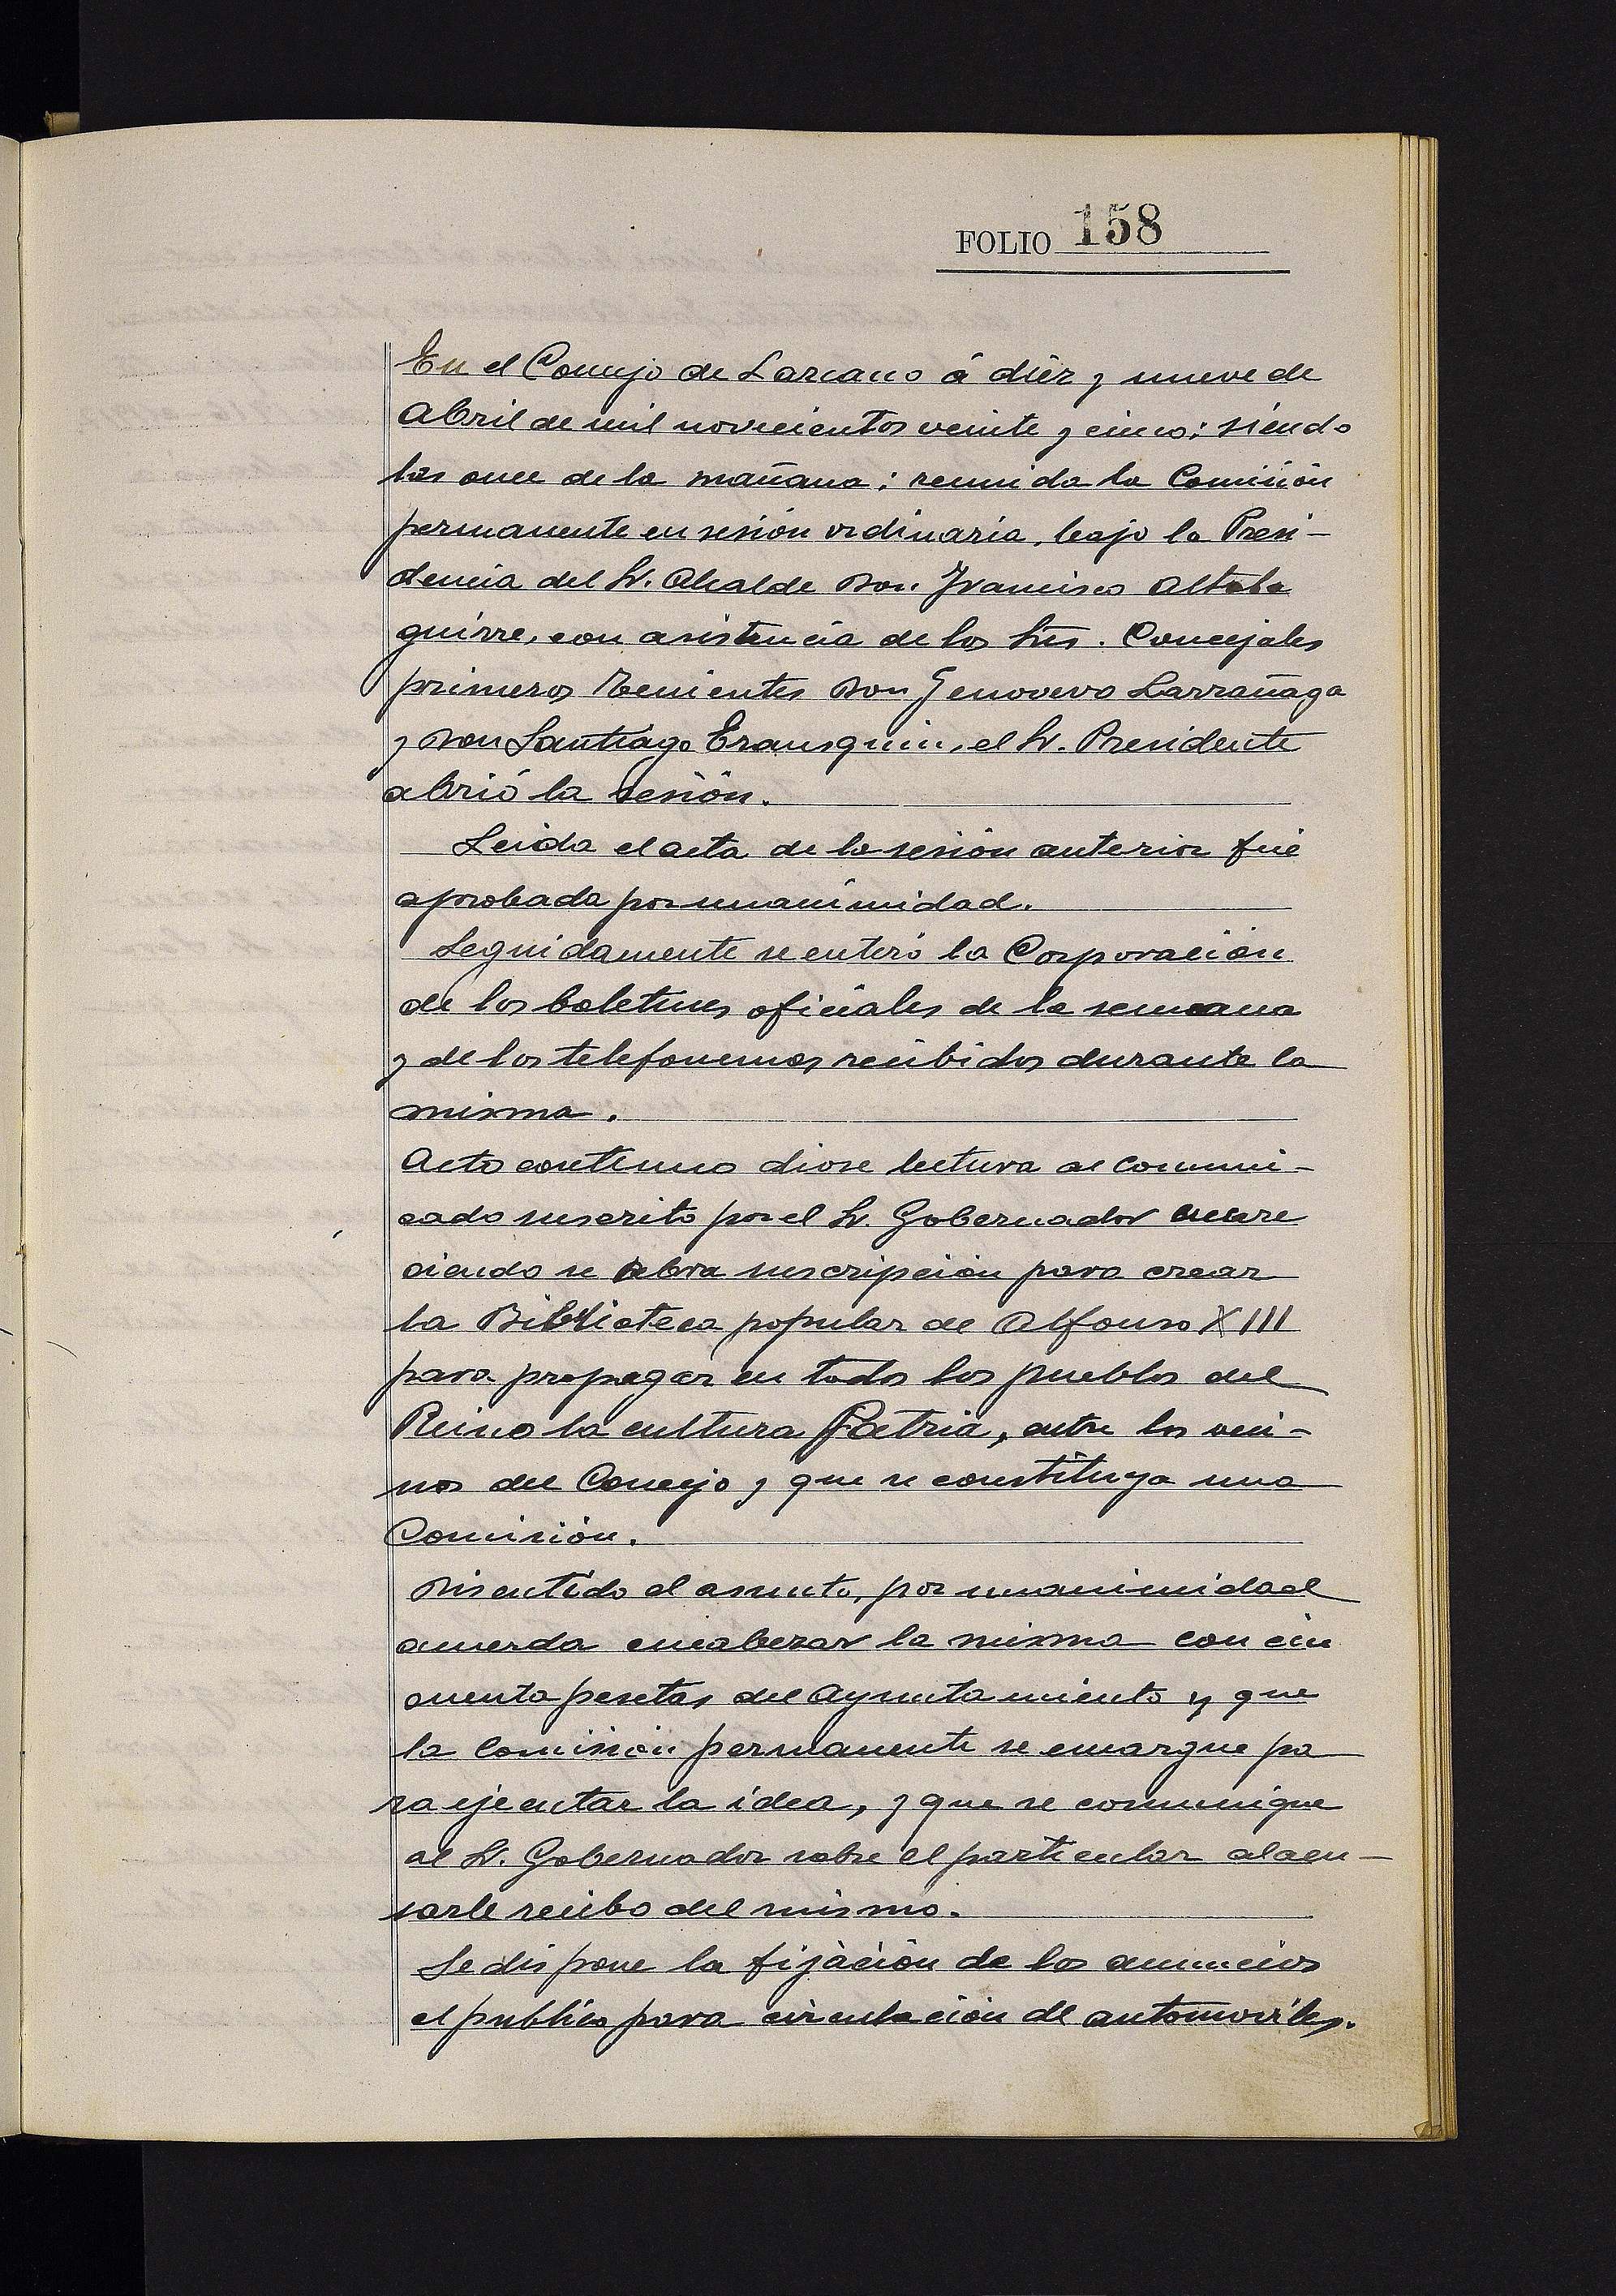 FOLIO 158
En el Concejo de Lazcano á diéz y nueve de
Abril de mil novecientos veinte y cinco; siendo
las once de la mañana; reunida la Comisión
permanente en sesión ordinaria, bajo la Presi-
dencia del Sr. Alcalde Don Francisco Altola
guirre, con asistencia de los Srs. Concejales
primeros Tenientes Don Genovevo Larrañaga
y Don Santiago Erausquin, el Sr. Presidente
abrió la sesión.
Leida el acta de la sesión anterior fué
aprobada por unanimidad.
Seguidamente se enteró la Corporación
de los boletines oficiales de la semana
y de los telefonemas recibidos durante la
misma.
Acto contínuo diose lectura al comuni-
cado suscrito por el Sr. Gobernador encare
ciendo se abra suscripción para crear
la Biblioteca popular de Alfonso XIII
para propagar en todos los pueblos del
Reino la cultura Patria, entre los veci-
nos del Concejo y que se constituya una
Comisión.
Discutido el asunto, por unanimidad
acuerda encabezar la misma con cin
cuenta pesetas del Ayuntamiento y que
la Comisión permanente se encargue pa
ra ejecutar la idea, y que se comunique
al Sr. Gobernador sobre el particular al acu-
sarle recibo del mismo.
Se dispone la fijación de los anuncios
al publico para circulación de automoviles.